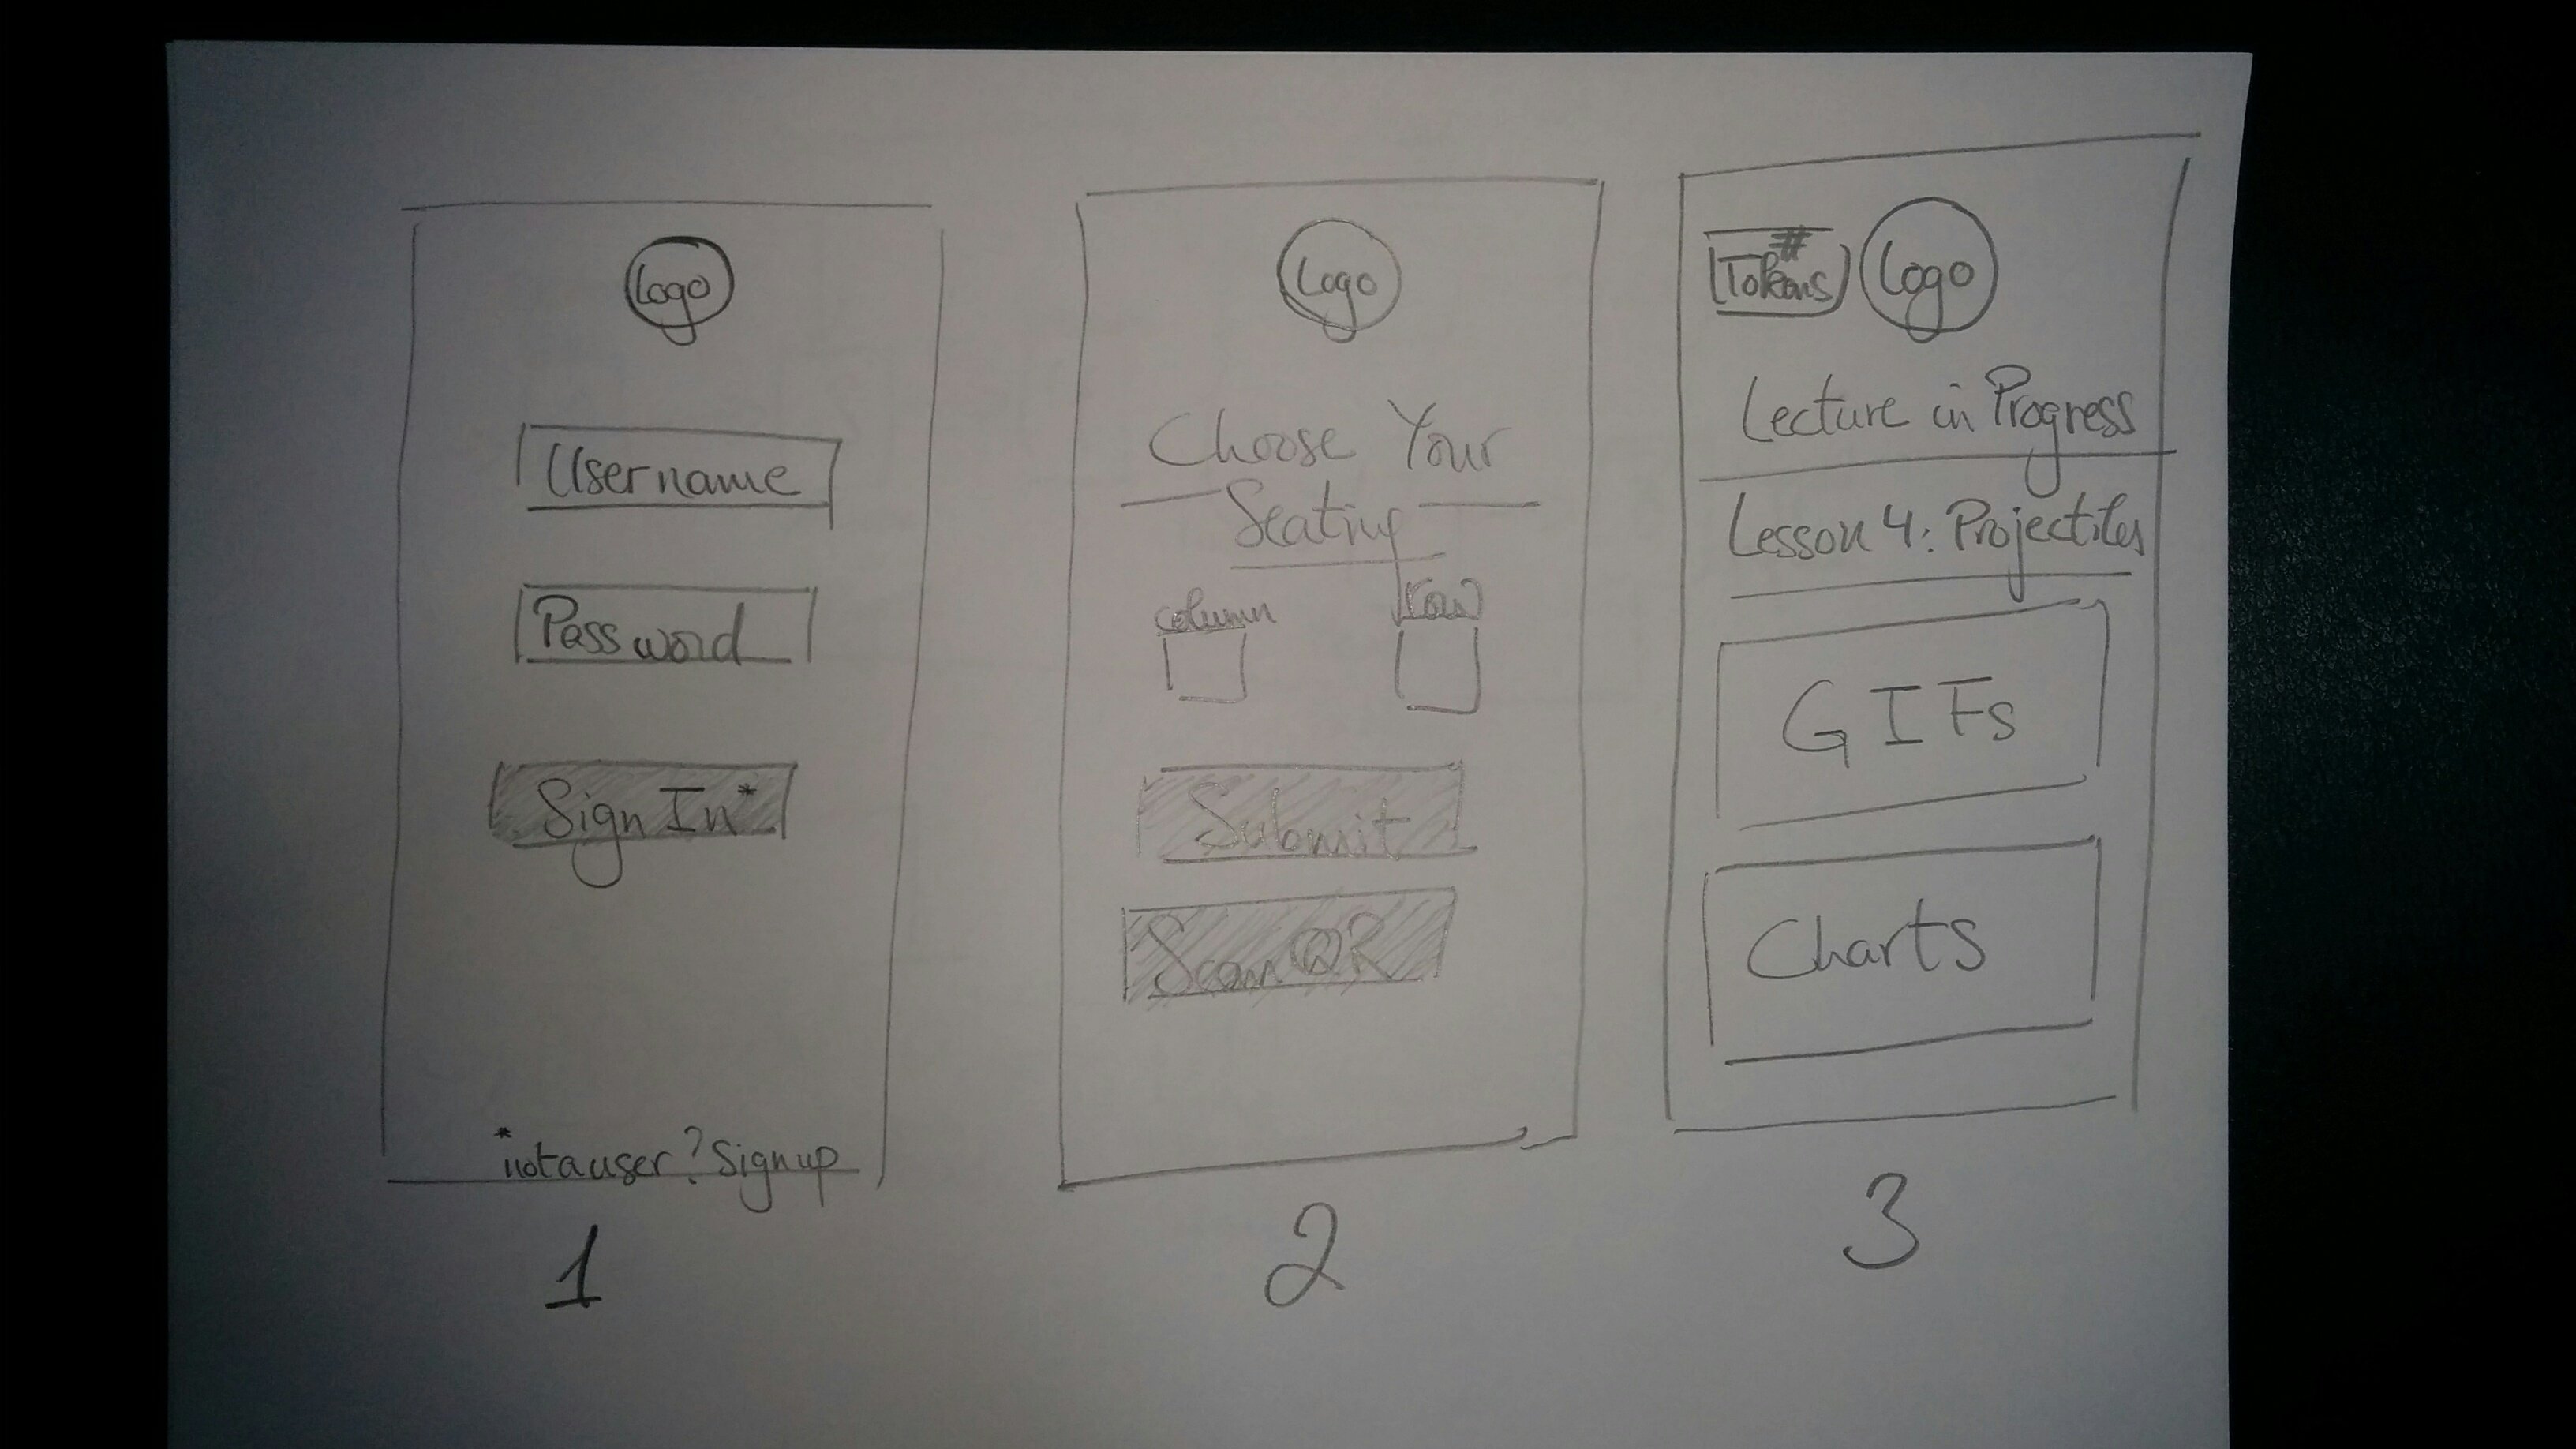 Logo
Username
Password
Sign In*
*not a user? Sign up
1
Logo
Choose Your
Seating
column
Row
Submit
Scan QR
2
#
Tokens
Logo
Lecture in Progress
Lesson 4: Projectiles
GIFs
Charts
3